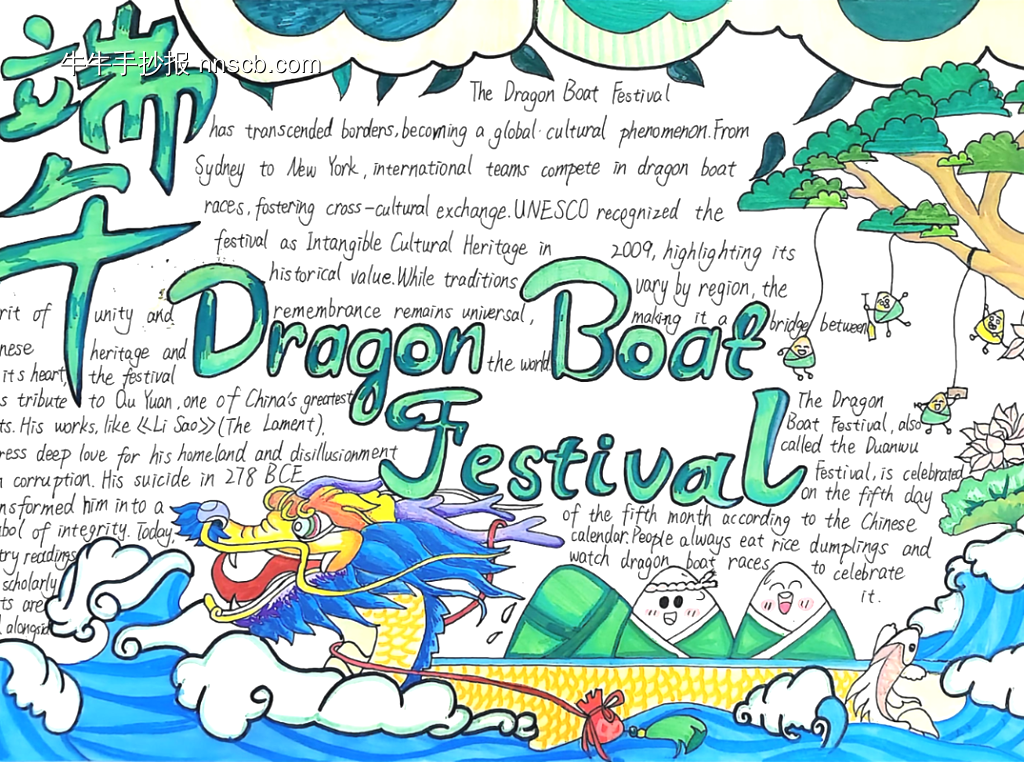 端午
牛牛手抄报 nnscb.com
The Dragon Boat Festival
has transcended borders, becoming a global cultural phenomenon. From
Sydney to New York, international teams compete in dragon boat
races, fostering cross-cultural exchange. UNESCO recognized the
festival as Intangible Cultural Heritage in 2009, highlighting its
historical value. While traditions vary by region, the
remembrance remains universal, making it a bridge between
the world.
Dragon Boat
Festival
rit of unity and
nese heritage and
its heart, the festival
s tribute to Qu Yuan, one of China's greatest
ts. His works, like 《Li Sao》 (The Lament),
ress deep love for his homeland and disillusionment
corruption. His suicide in 278 BCE
nsformed him into a
bol of integrity. Today,
try readings
scholarly
ts are
alongside
The Dragon
Boat Festival, also
called the Duanwu
Festival, is celebrated
on the fifth day
of the fifth month according to the Chinese
calendar. People always eat rice dumplings and
watch dragon boat races to celebrate
it.